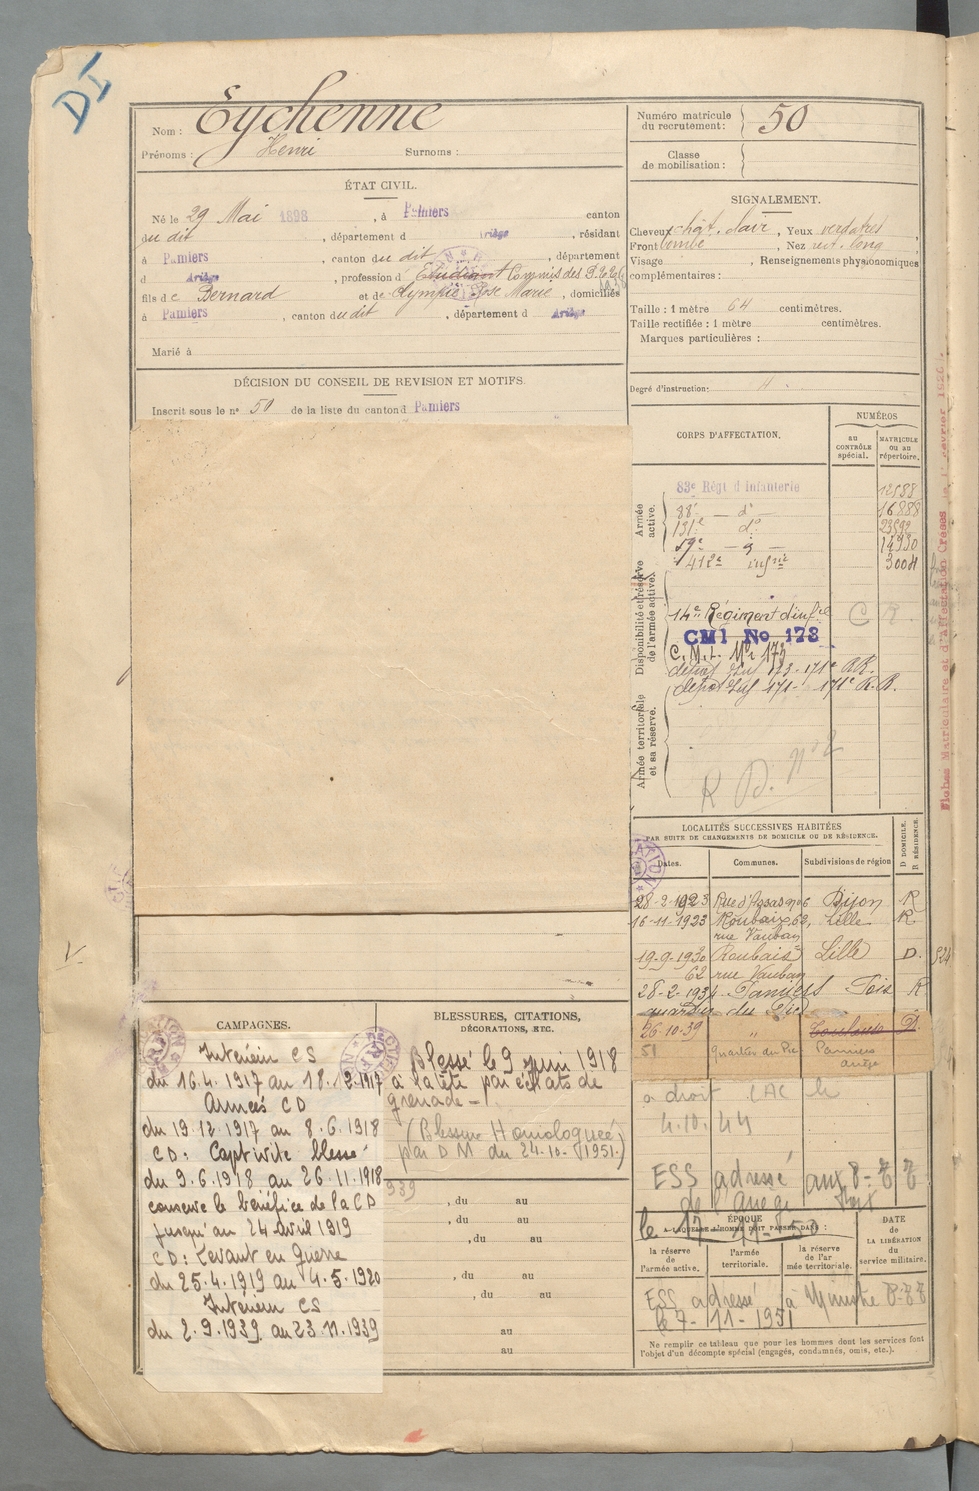 DI
Nom : Eychenne
Prénoms : Henri Surnoms :
Numéro matricule du recrutement : 50
Classe de mobilisation :
ÉTAT CIVIL.
Né le 29 Mai 1898, à Pamiers canton
du dit, département d Ariège, résidant
à Pamiers, canton du dit, département
d Ariège, profession d Etudiant Commis des P.T.T.
fils de Bernard et de Olympie Rose Marie, domiciliés
à Pamiers, canton du dit, département d Ariège
Marié à
DÉCISION DU CONSEIL DE REVISION ET MOTIFS.
Inscrit sous le n° 50 de la liste du canton d Pamiers
SIGNALEMENT.
Cheveux chât. clair, Yeux verdatres
Front bombé, Nez rect. long
Visage , Renseignements physionomiques
complémentaires :
Taille : 1 mètre 64 centimètres.
Taille rectifiée : 1 mètre centimètres.
Marques particulières :
Degré d'instruction :
CORPS D'AFFECTATION.
NUMÉROS
au CONTRÔLE spécial.
MATRICULE ou au répertoire.
Armée active.
83e Régt d Infanterie 12588
88e — d° — 16888
131e d°
59e — d° — 14930
412e infrie 3004
Disponibilité et réserve de l'armée active.
14e Régiment d'infie C R.
CMI No 173
C.M.I. No 173
dépôt Inf 173 - 171e R.R.
dépôt Inf 171 - 171e R.R.
Armée territoriale et sa réserve.
R D. n°2
Fiches Matriculaire et d'affectation Créées le 1er Février 1926.
LOCALITÉS SUCCESSIVES HABITÉES
PAR SUITE DE CHANGEMENTS DE DOMICILE OU DE RÉSIDENCE.
Dates. Communes. Subdivisions de région D DOMICILE. R RÉSIDENCE.
28-2-1923 Rue d'Assas n°6 Dijon R
16-11-1923 Roubaix 62, Lille R
rue Vauban
19-9-1930 Roubaix Lille D.
62 rue Vauban
28-2-1934 Pamiers Foix R
quartier du Pic
26-10-39 " Toulouse D
51 quartier du Pic Pamiers
Ariège
a droit LAC le
4.10.44
ESS adressé aux P.TT
de l'Ariège Foix
le 17-11-50
ÉPOQUE
À LAQUELLE L'HOMME DOIT PASSER DANS :
la réserve de l'armée active.
l'armée territoriale.
la réserve de l'armée territoriale.
DATE de LA LIBÉRATION du service militaire.
ESS adressé à Ministre P.TT
le 7-11-1951
Ne remplir ce tableau que pour les hommes dont les services font
l'objet d'un décompte spécial (engagés, condamnés, omis, etc.).
CAMPAGNES.
Intérieur CS
du 16.4.1917 au 18.12.1917
Armées CD
du 19.12.1917 au 8.6.1918
CD : Captivité blessé
du 9.6.1918 au 26.11.1918
conserve le bénéfice de la CD
jusqu'au 24 avril 1919
CD : Levant en Guerre
du 25.4.1919 au 4.5.1920
Intérieur CS
du 2.9.1939 au 23.11.1939
BLESSURES, CITATIONS,
DÉCORATIONS, ETC.
Blessé le 9 juin 1918
à la tête par éclats de
grenade —
(Blessure Homologuée)
par D M du 24-10-1951.)
939
, du au
, du au
, du au
, du au
, du au
au
au